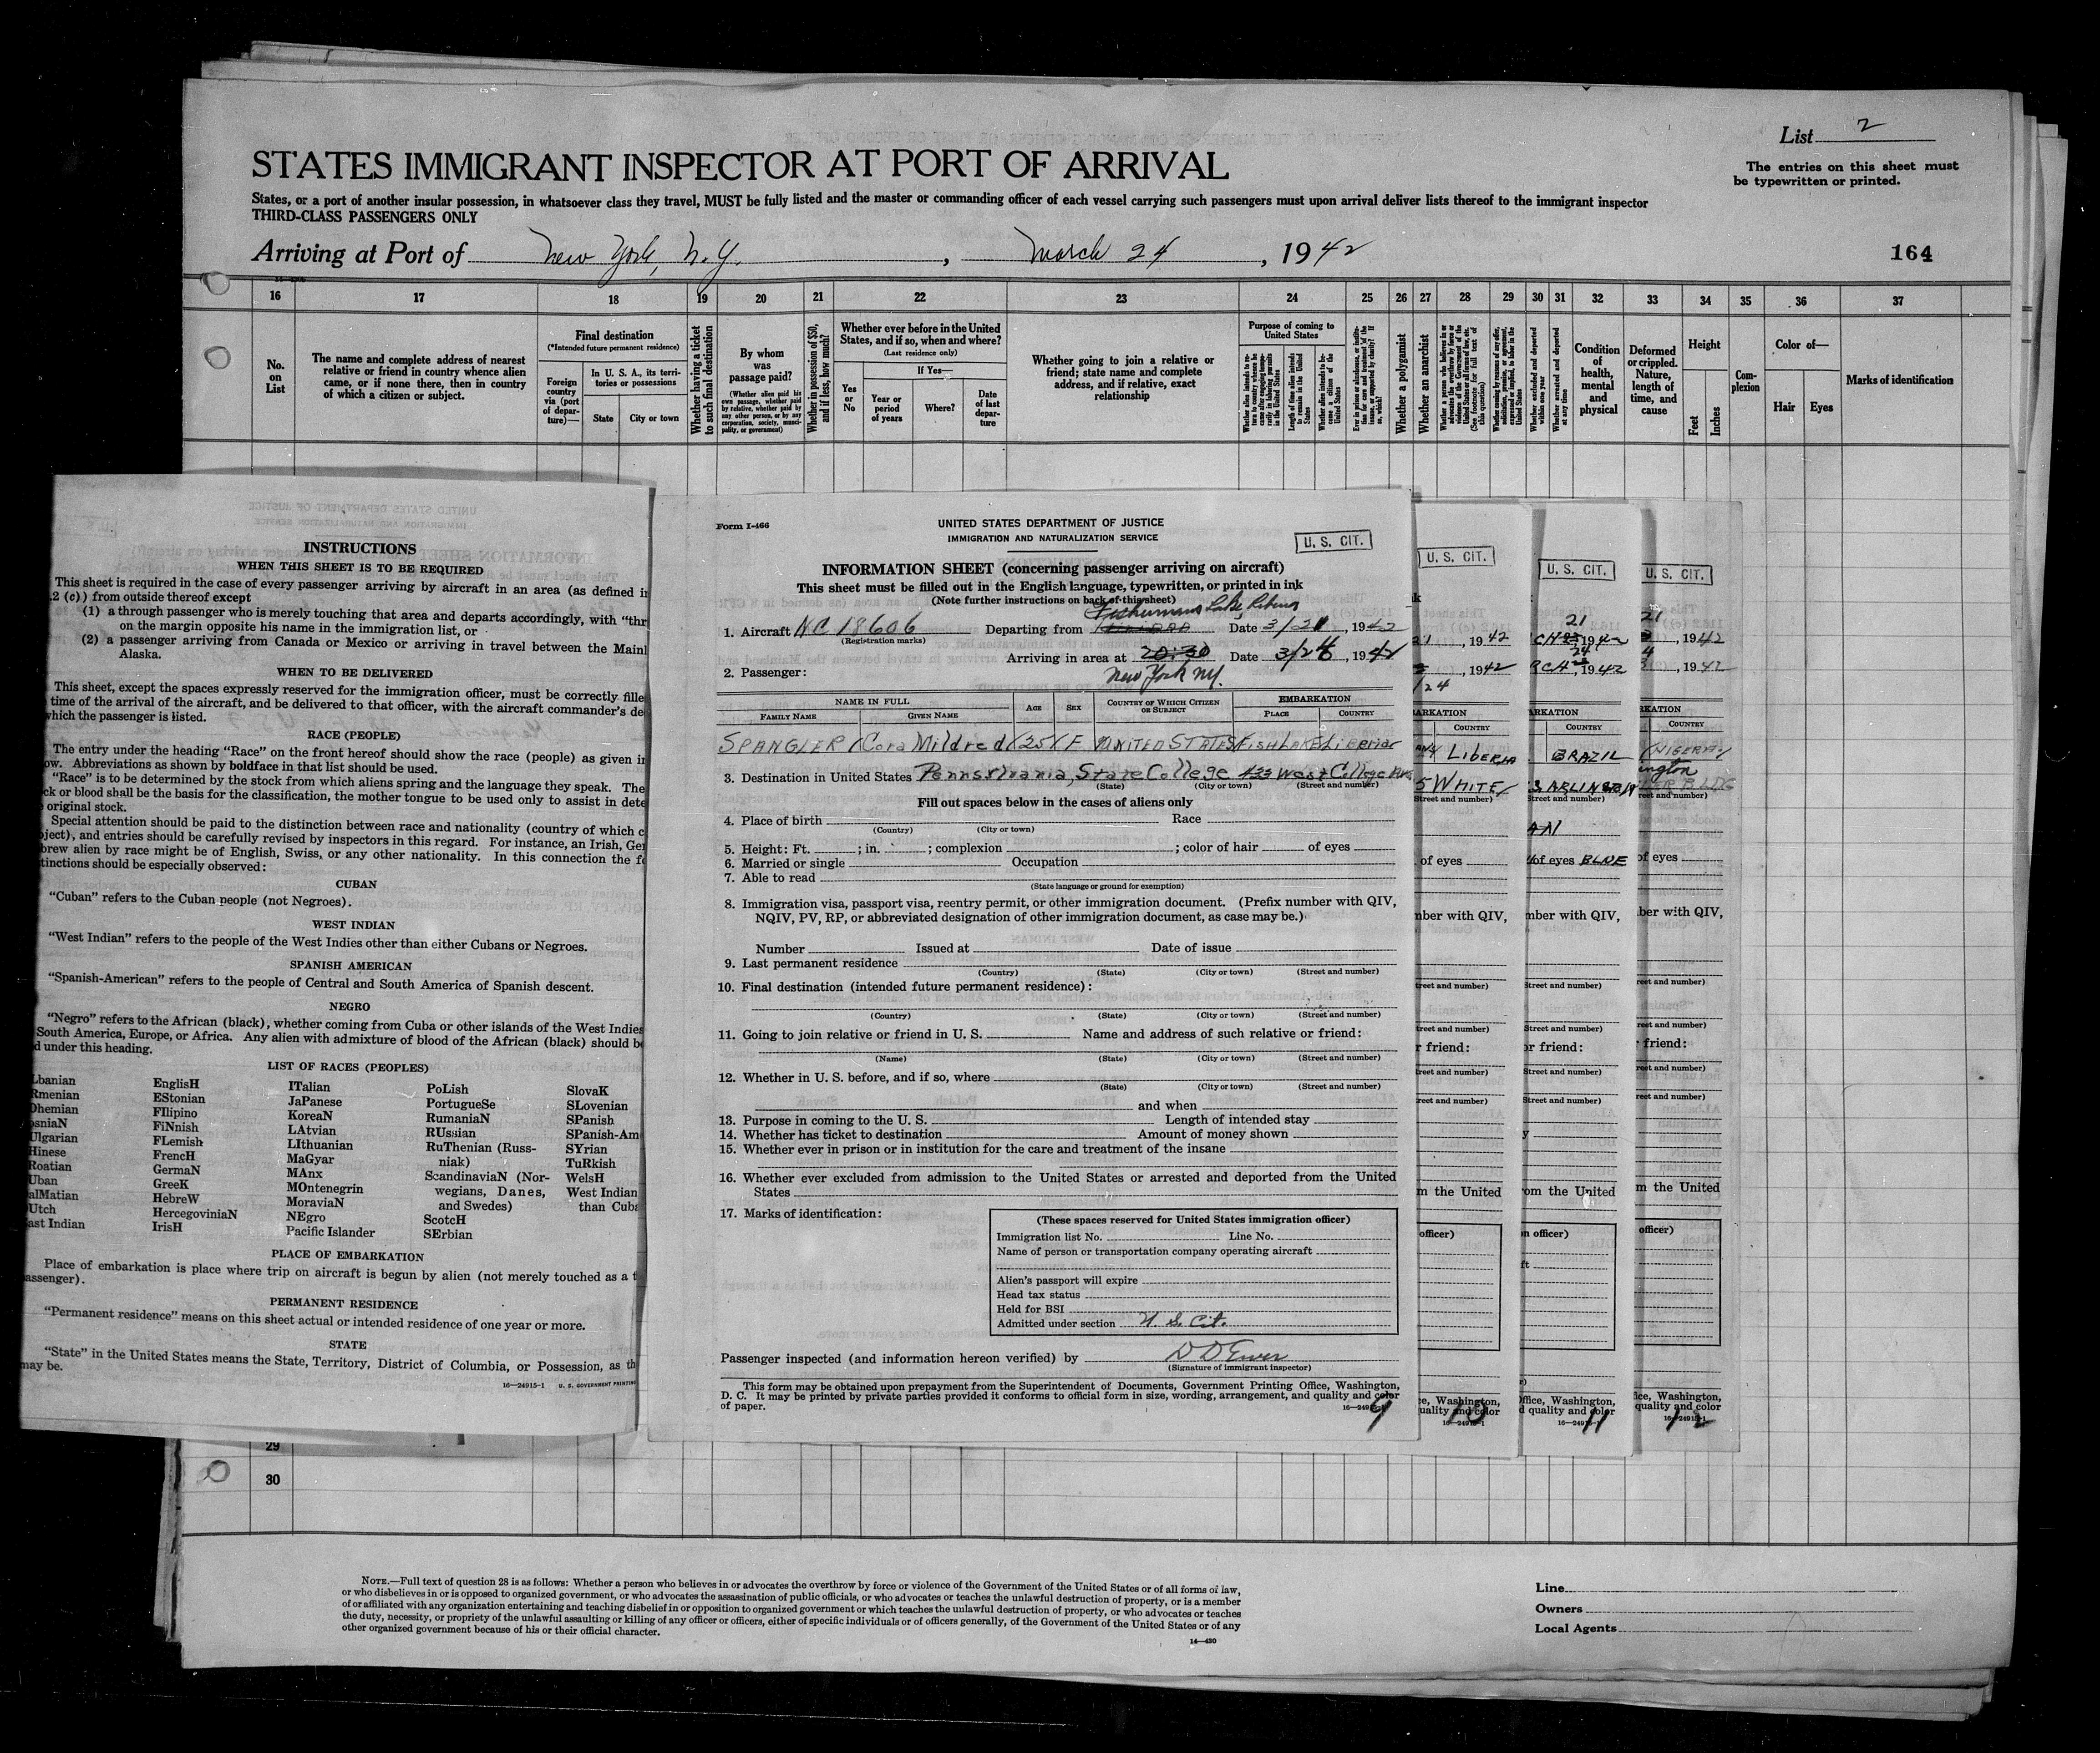 List 2
STATES IMMIGRANT INSPECTOR AT PORT OF ARRIVAL
The entries on this sheet must
be typewritten or printed.
States, or a port of another insular possession, in whatsoever class they travel, MUST be fully listed and the master or commanding officer of each vessel carrying such passengers must upon arrival deliver lists thereof to the immigrant inspector
THIRD-CLASS PASSENGERS ONLY
Arriving at Port of New York, N.Y. , March 24 , 1942
164
16 17 18 19 20 21 22 23 24 25 26 27 28 29 30 31 32 33 34 35 36 37
No.
on
List
The name and complete address of nearest
relative or friend in country whence alien
came, or if none there, then in country
of which a citizen or subject.
Final destination
(*Intended future permanent residence)
Foreign
country
via (port
of depar-
ture)—
In U. S. A., its terri-
tories or possessions
State
City or town
Whether having a ticket
to such final destination
By whom
was
passage paid?
(Whether alien paid his
own passage, whether paid
by relative, whether paid by
any other person, or by any
corporation, society, munici-
pality, or government)
Whether in possession of $50,
and if less, how much?
Whether ever before in the United
States, and if so, when and where?
(Last residence only)
Yes
or
No
If Yes—
Year or
period
of years
Where?
Date
of last
depar-
ture
Whether going to join a relative or
friend; state name and complete
address, and if relative, exact
relationship
Purpose of coming to
United States
Whether a polygamist
Whether an anarchist
Condition
of
health,
mental
and
physical
Deformed
or crippled.
Nature,
length of
time, and
cause
Height
Feet
Inches
Com-
plexion
Color of—
Hair
Eyes
Marks of identification
INSTRUCTIONS
WHEN THIS SHEET IS TO BE REQUIRED
This sheet is required in the case of every passenger arriving by aircraft in an area (as defined in
.2 (c)) from outside thereof except
(1) a through passenger who is merely touching that area and departs accordingly, with "thr
on the margin opposite his name in the immigration list, or
(2) a passenger arriving from Canada or Mexico or arriving in travel between the Mainl
Alaska.
WHEN TO BE DELIVERED
This sheet, except the spaces expressly reserved for the immigration officer, must be correctly fille
time of the arrival of the aircraft, and be delivered to that officer, with the aircraft commander's de
which the passenger is listed.
RACE (PEOPLE)
The entry under the heading "Race" on the front hereof should show the race (people) as given in
ow. Abbreviations as shown by boldface in that list should be used.
"Race" is to be determined by the stock from which aliens spring and the language they speak. The
ck or blood shall be the basis for the classification, the mother tongue to be used only to assist in dete
original stock.
Special attention should be paid to the distinction between race and nationality (country of which c
bject), and entries should be carefully revised by inspectors in this regard. For instance, an Irish, Ger
brew alien by race might be of English, Swiss, or any other nationality. In this connection the fo
tinctions should be especially observed:
CUBAN
"Cuban" refers to the Cuban people (not Negroes).
WEST INDIAN
"West Indian" refers to the people of the West Indies other than either Cubans or Negroes.
SPANISH AMERICAN
"Spanish-American" refers to the people of Central and South America of Spanish descent.
NEGRO
"Negro" refers to the African (black), whether coming from Cuba or other islands of the West Indies
South America, Europe, or Africa. Any alien with admixture of blood of the African (black) should b
d under this heading.
LIST OF RACES (PEOPLES)
lbanian EnglisH ITalian PoLish SlovaK
Rmenian EStonian JaPanese PortugueSe SLovenian
Ohemian FIlipino KoreaN RumaniaN SPanish
osniaN FiNnish LAtvian RUssian SPanish-Am
Ulgarian FLemish LIthuanian RuThenian (Russ- SYrian
Hinese FrencH MaGyar niak) TuRkish
Roatian GermaN MAnx ScandinaviaN (Nor- WelsH
Uban GreeK MOntenegrin wegians, Danes, West Indian
alMatian HebreW MoraviaN and Swedes) than Cuba
Utch HercegoviniaN NEgro ScotcH
ast Indian IrisH Pacific Islander SErbian
PLACE OF EMBARKATION
Place of embarkation is place where trip on aircraft is begun by alien (not merely touched as a t
assenger).
PERMANENT RESIDENCE
"Permanent residence" means on this sheet actual or intended residence of one year or more.
STATE
"State" in the United States means the State, Territory, District of Columbia, or Possession, as th
may be.
16—24915-1 U. S. GOVERNMENT PRINTING
Form I-466
UNITED STATES DEPARTMENT OF JUSTICE
IMMIGRATION AND NATURALIZATION SERVICE
U. S. CIT.
INFORMATION SHEET (concerning passenger arriving on aircraft)
This sheet must be filled out in the English language, typewritten, or printed in ink
(Note further instructions on back of this sheet)
Fishermans Lake, Liberia
1. Aircraft NC 18606 Departing from Date 3/21 , 1942
(Registration marks)
Arriving in area at 20:30 Date 3/24 , 1942
2. Passenger: New York NY.
NAME IN FULL AGE SEX COUNTRY OF WHICH CITIZEN OR SUBJECT EMBARKATION
FAMILY NAME GIVEN NAME PLACE COUNTRY
SPANGLER Cora Mildred 25 F UNITED STATES FISH LAKE Liberia
3. Destination in United States Pennsylvania, State College 433 West College Ave
(State) (City or town) (Street and number)
Fill out spaces below in the cases of aliens only
4. Place of birth Race
(Country) (City or town)
5. Height: Ft. ; in. ; complexion ; color of hair of eyes
6. Married or single Occupation
7. Able to read
(State language or ground for exemption)
8. Immigration visa, passport visa, reentry permit, or other immigration document. (Prefix number with QIV,
NQIV, PV, RP, or abbreviated designation of other immigration document, as case may be.)
Number Issued at Date of issue
9. Last permanent residence
(Country) (State) (City or town) (Street and number)
10. Final destination (intended future permanent residence):
(Country) (State) (City or town) (Street and number)
11. Going to join relative or friend in U. S. Name and address of such relative or friend:
(Name) (State) (City or town) (Street and number)
12. Whether in U. S. before, and if so, where
(State) (City or town) (Street and number)
and when
13. Purpose in coming to the U. S. Length of intended stay
14. Whether has ticket to destination Amount of money shown
15. Whether ever in prison or in institution for the care and treatment of the insane
16. Whether ever excluded from admission to the United States or arrested and deported from the United
States
17. Marks of identification:
(These spaces reserved for United States immigration officer)
Immigration list No. Line No.
Name of person or transportation company operating aircraft
Alien's passport will expire
Head tax status
Held for BSI
Admitted under section U. S. Cit.
Passenger inspected (and information hereon verified) by
(Signature of immigrant inspector)
This form may be obtained upon prepayment from the Superintendent of Documents, Government Printing Office, Washington,
D. C. It may be printed by private parties provided it conforms to official form in size, wording, arrangement, and quality and color
of paper.
9
U. S. CIT.
, 1942
, 1942
24
COUNTRY
LIBERIA
5 WHITE
of eyes
mber with QIV,
r friend:
m the United
officer)
ce, Washington,
uality and color
10
U. S. CIT.
21
1942
24
1942
COUNTRY
BRAZIL
of eyes BLUE
mber with QIV,
or friend:
om the United
n officer)
Office, Washington,
d quality and color
11
U. S. CIT.
21
, 1942
, 1942
COUNTRY
NIGERIA
ington
of eyes
ber with QIV,
friend:
m the United
officer)
ice, Washington,
quality and color
12
29
30
NOTE.—Full text of question 28 is as follows: Whether a person who believes in or advocates the overthrow by force or violence of the Government of the United States or of all forms of law,
or who disbelieves in or is opposed to organized government, or who advocates the assassination of public officials, or who advocates or teaches the unlawful destruction of property, or is a member
of or affiliated with any organization entertaining and teaching disbelief in or opposition to organized government or which teaches the unlawful destruction of property, or who advocates or teaches
the duty, necessity, or propriety of the unlawful assaulting or killing of any officer or officers, either of specific individuals or of officers generally, of the Government of the United States or of any
other organized government because of his or their official character.
14—430
Line
Owners
Local Agents